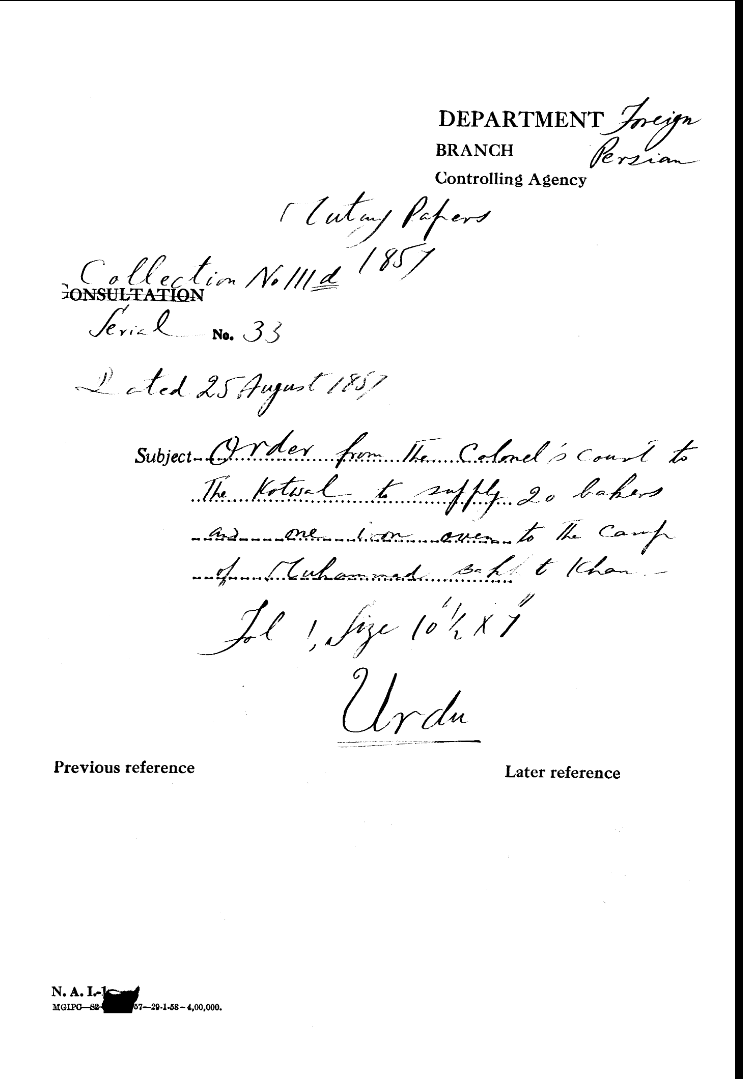 DEPARTMENT Foreign
BRANCH Persian
Controlling Agency
Mutiny Papers
1857
Collection No III d
CONSULTATION
Serial No. 33
Dated 25 August 1857
Subject Order from the Colonel's court to
the Kotwal to supply 20 bakers
and one iron oven to the camp
of Muhammad Bakht Khan
Fol 1, Size 10½" X 7"
Urdu
Previous reference Later reference
N. A. I.-
MGIPC—S2 57—29-1-58—4,00,000.